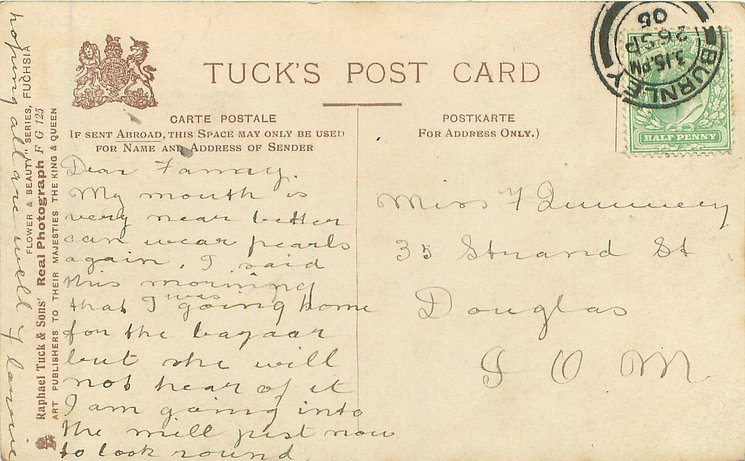 TUCK'S POST CARD
CARTE POSTALE
IF SENT ABROAD, THIS SPACE MAY ONLY BE USED
FOR NAME AND ADDRESS OF SENDER
POSTKARTE
FOR ADDRESS ONLY.)
BURNLEY
3.15 PM
26 SP
05
HALF PENNY
Dear Fanny.
My mouth is
very near better
can wear pearls
again, I said
this morning
that I was going home
for the bazaar
but she will
not hear of it
I am going into
the mill just now
to look round
Miss F
35 Strand St
Douglas
I O M
hoping all are well
"FLOWER & BEAUTY" SERIES, FUCHSIA
Raphael Tuck & Sons' Real Photograph F G 125
ART PUBLISHERS TO THEIR MAJESTIES THE KING & QUEEN